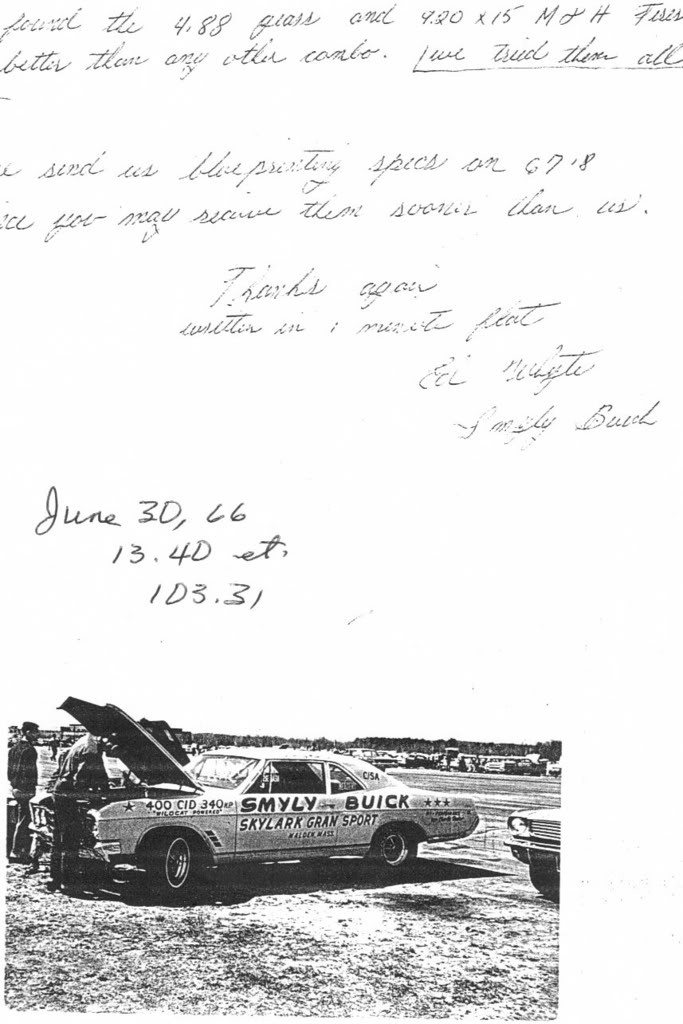 found the 4.88 gears and 9.20 x 15 M & H Tires
better than any other combo. I've tried them all
send us blueprinting specs on 67.8
you may receive them sooner than us.
Thanks again
written in 1 minute flat
Ed Whyte
Smyly Buick
June 30, 66
13.40 et.
103.31
C/SA
400 CID 340 HP
"WILDCAT POWERED"
SMYLY BUICK
SKYLARK GRAN SPORT
MALDEN, MASS.